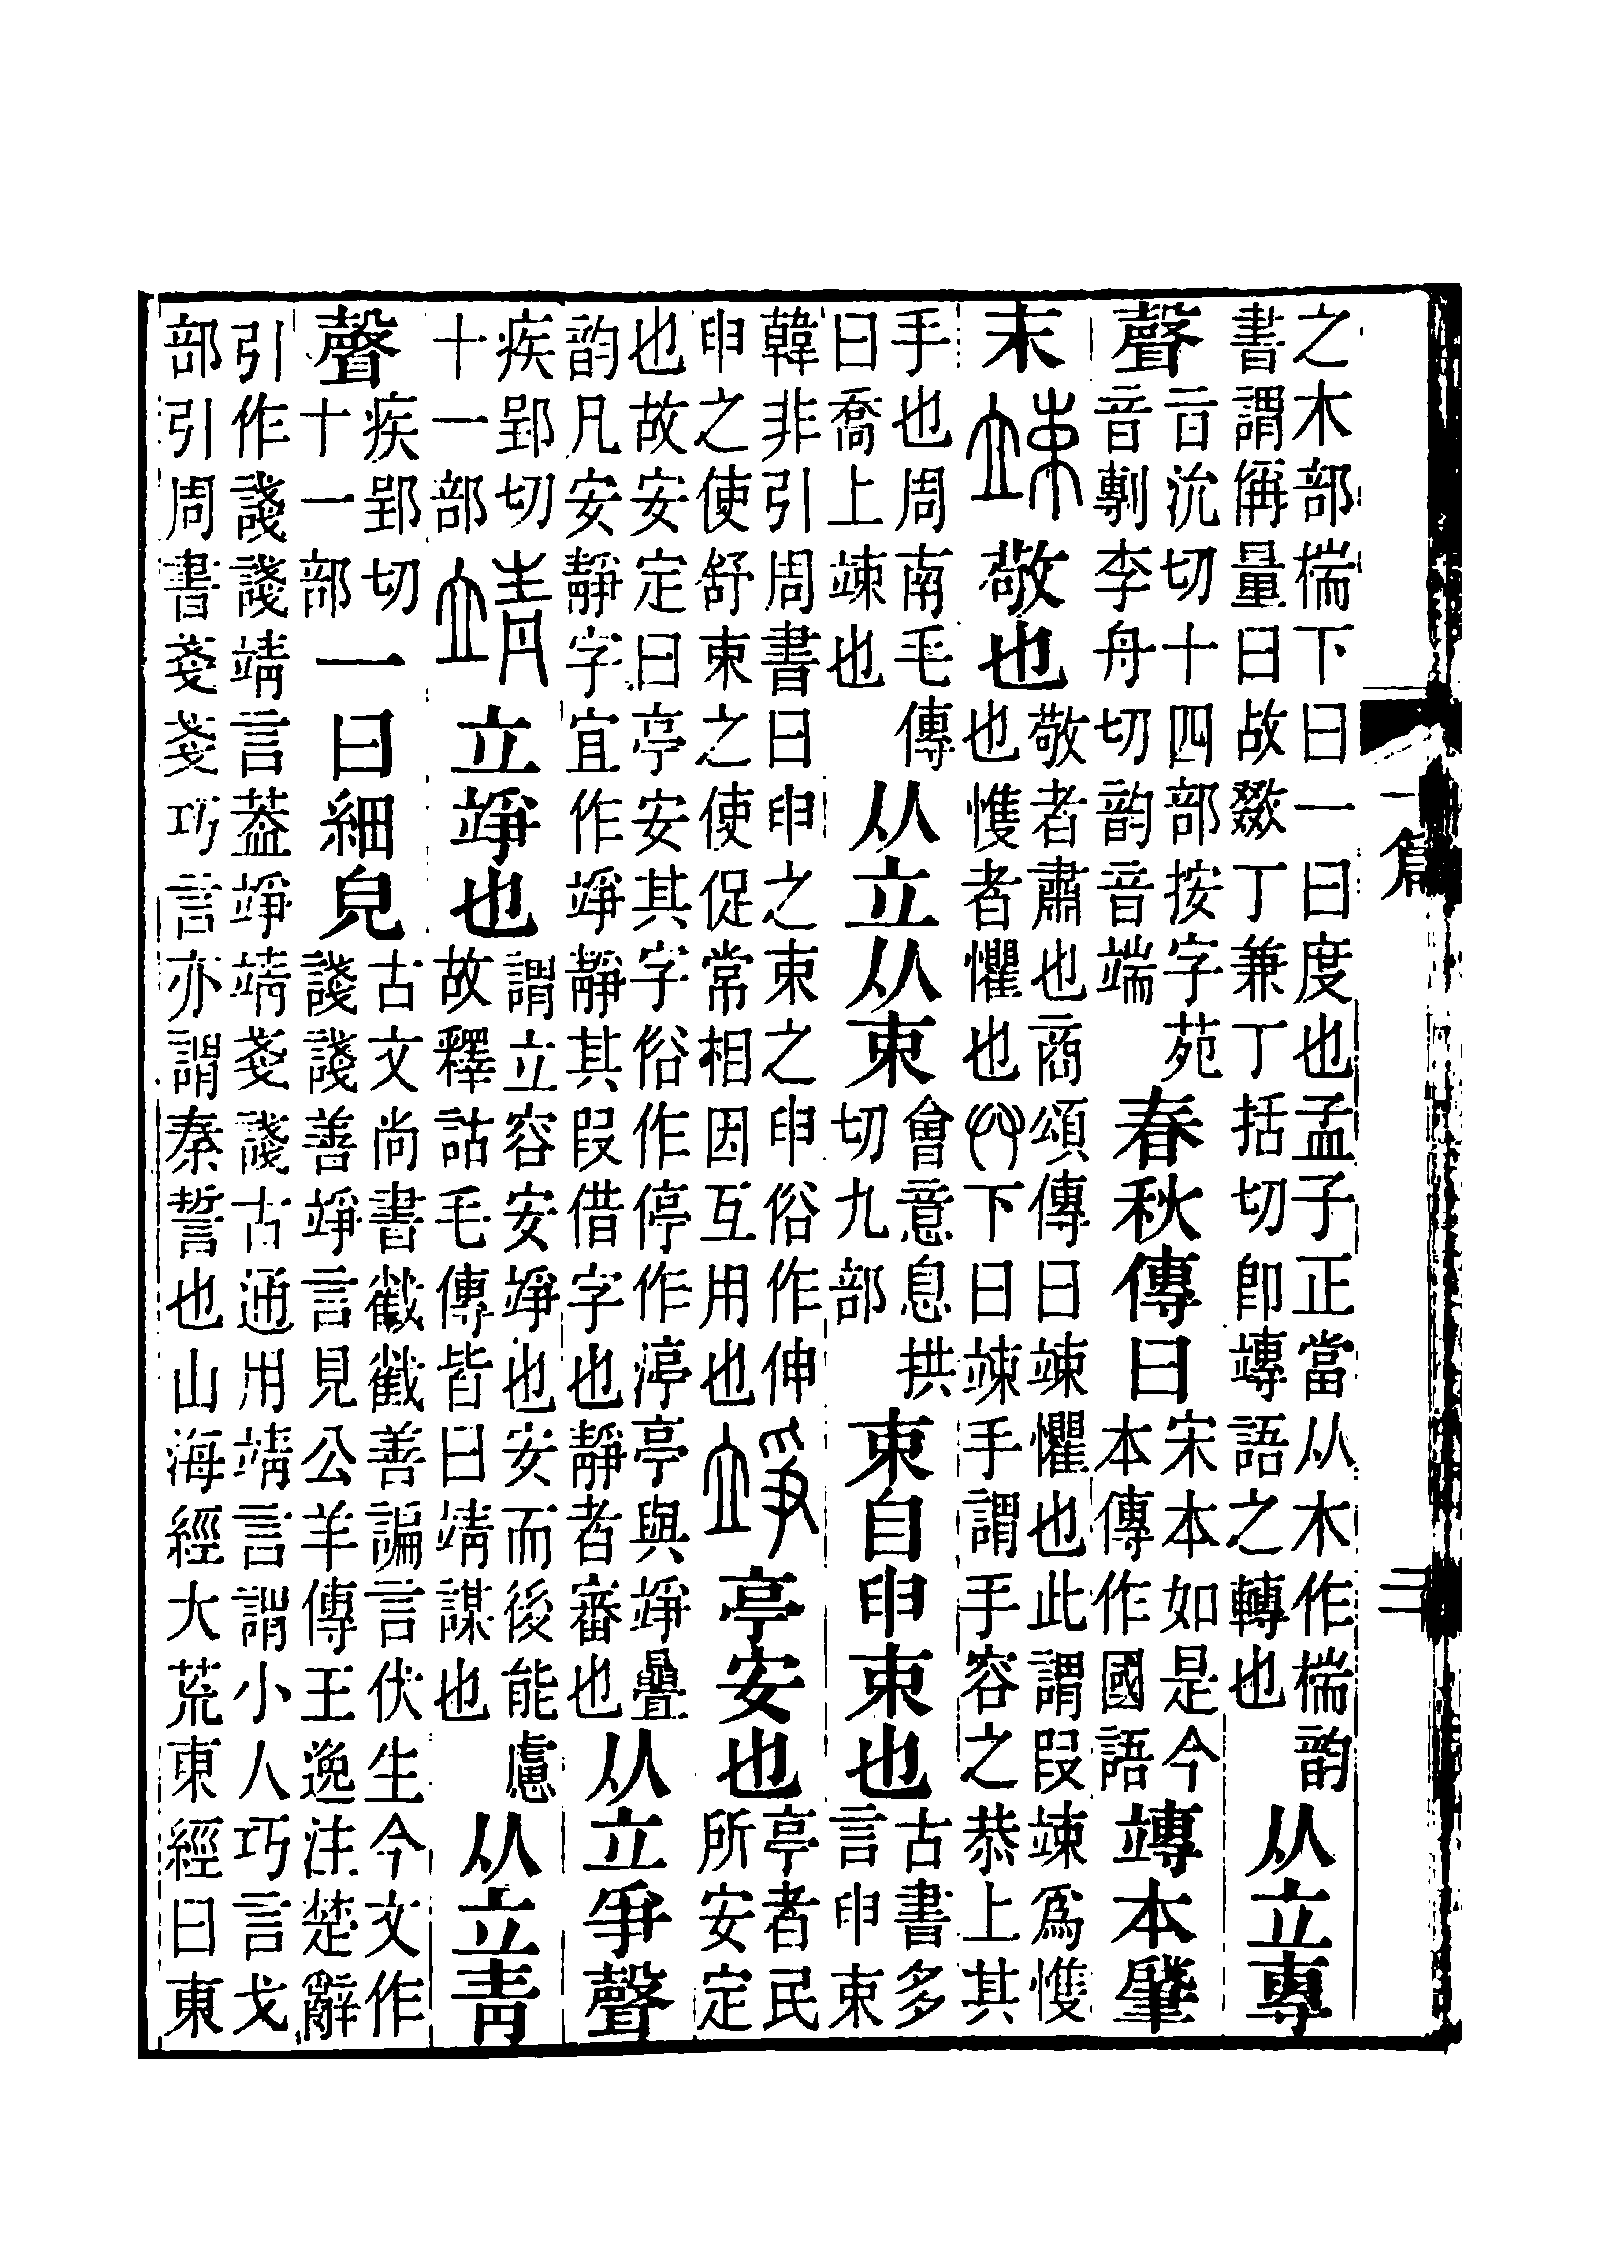 之木部椯下曰一曰度也孟子正當从木作椯韵
書謂偁量曰敁敠丁兼丁括切卽竱語之轉也
从立專
聲
旨沇切十四部按字苑
音剸李舟切韵音端
春秋傳曰
宋本如是今
本傳作國語
竱本肈
末竦敬也
敬者肅也商頌傳曰竦懼也此謂叚竦爲愯
也愯者懼也𠬞下曰竦手謂手容之恭上其
手也周南毛傳
曰喬上竦也
从立从束
會意息拱
切九部
束自申束也
古書多
言申束
韓非引周書曰申之束之申俗作伸
申之使舒束之使促常相因互用也
竫亭安也
亭者民
所安定
也故安定曰亭安其字俗作停作渟亭與竫疊
韵凡安靜字宜作竫靜其叚借字也靜者審也
从立爭聲
疾郢切
十一部
靖立竫也
謂立容安竫也安而後能慮
故釋詁毛傳皆曰靖謀也
从立靑
聲
疾郢切
十一部
一曰細皃
古文尚書截截善諞言伏生今文作
諓諓善竫言見公羊傳王逸注楚辭
引作諓諓靖言葢竫靖戔諓古通用靖言謂小人巧言戈
部引周書戔戔巧言亦謂秦誓也山海經大荒東經曰東